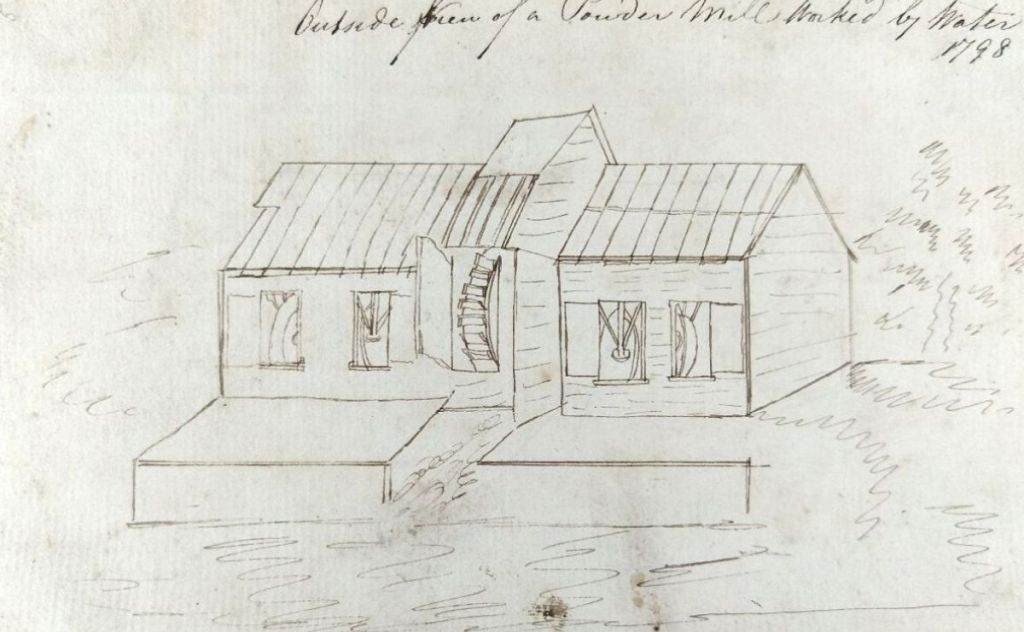 Outside View of a Powder Mill Worked by Water
1798